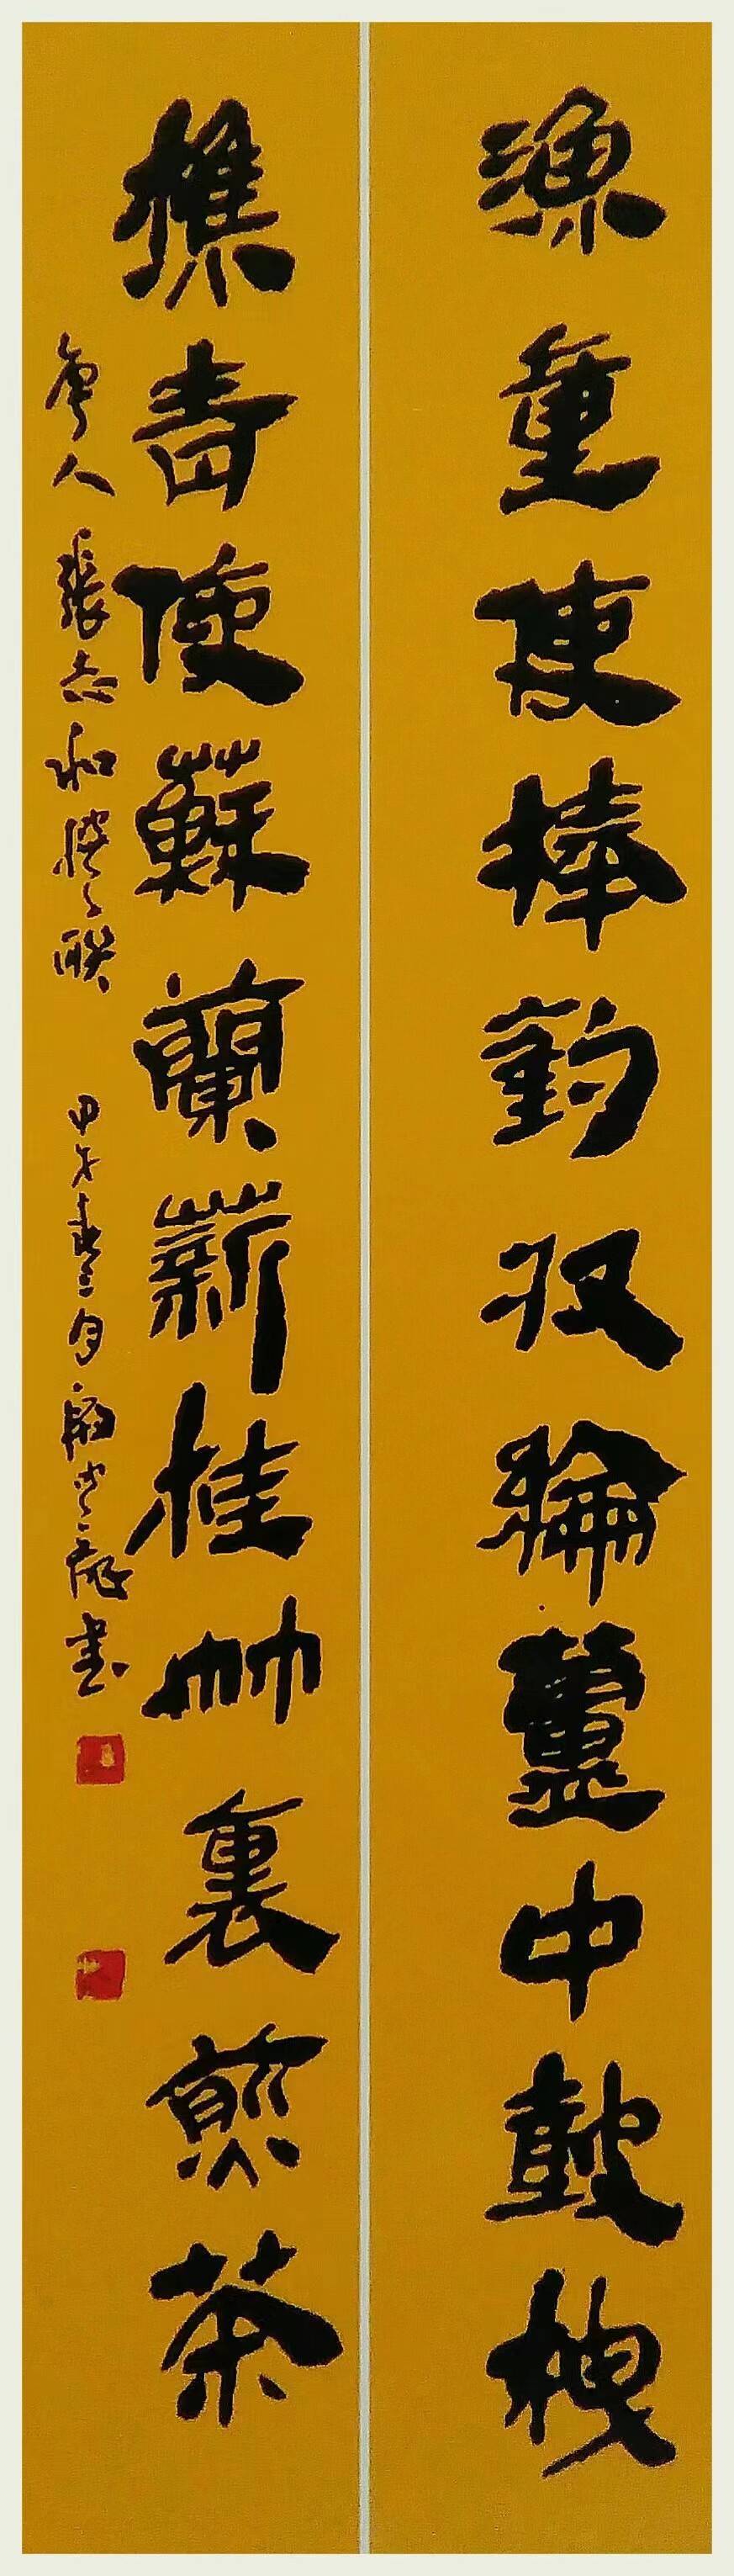 漁童使捧釣収綸蘆中鼓栧
樵青使蘇蘭薪桂竹裏煎茶
唐人張志和撰之联 甲午春三月 書